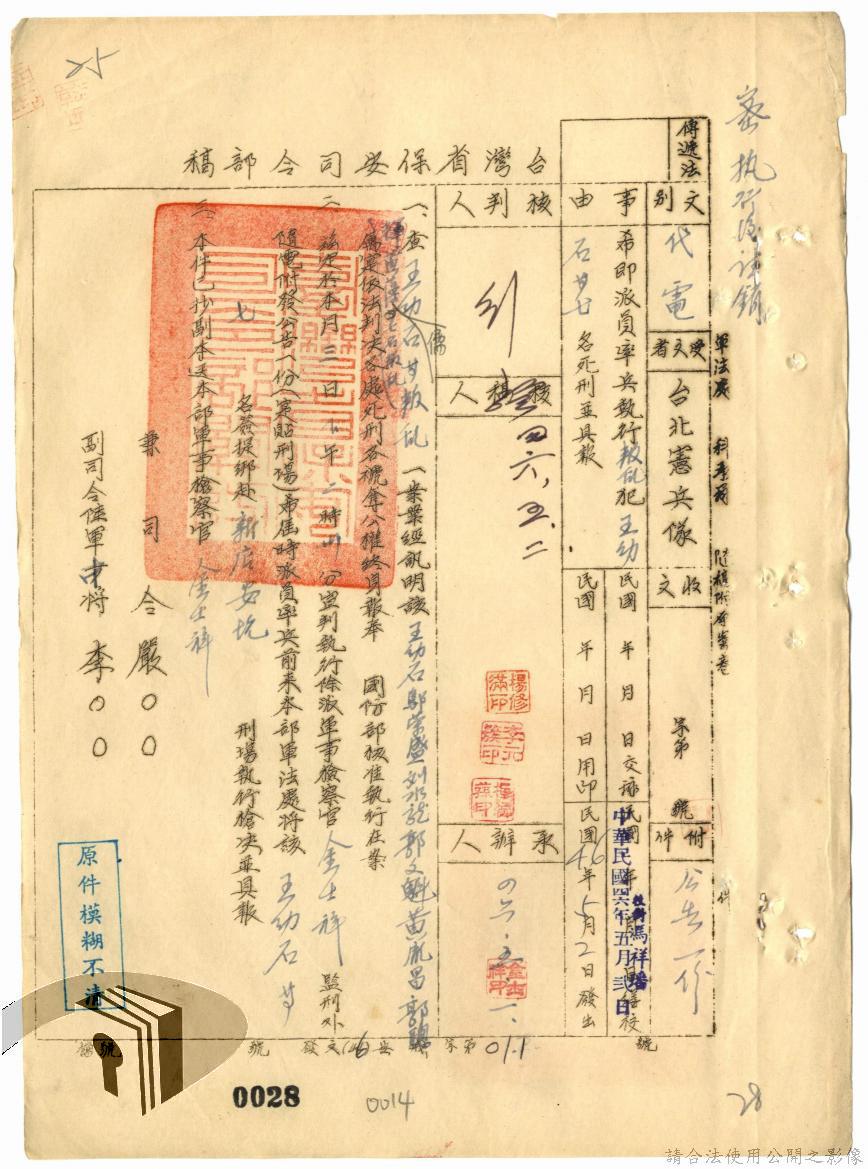 25
密 执行後註銷
軍法處
台灣省保安司令部稿
傳遞法
文別
代電
受文者
台北憲兵隊
收文
字第
號
附件
公告一份
事由
希即派員率兵執行叛乱犯王幼
石等七名死刑並具報
民國 年 月 日交
民國 年 月 日用印
民國46年5月2日發出
中華民國四六年五月貳日
馬祥
核判人
核稿人
四六、五、二
承辦人
四六、五、二、
楊修
金士祥印
一、查王幼石等叛乱一案業經訊明該王幼石鄔榮盛刘水龍郭文魁黃胤昌郭聰
儒
寔依法判决各處死刑各褫奪公權終身報奉 國防部核准執行在案
二、茲定於本月三日下午二時卅分宣判執行除派軍事檢察官金士祥 監刑外
隨電附發公告一份(寔貼刑場)希屆時派員率兵前来本部軍法處將該王幼石等
七 名簽提綁赴新店安坑 刑場執行槍决並具報
三、本件已抄副本送本部軍事檢察官金士祥
兼司令嚴○○
副司令陸軍中將李○○
原件模糊不清
發文(46)安 字第 011 號
0028
0014
28
請合法使用公開之影像